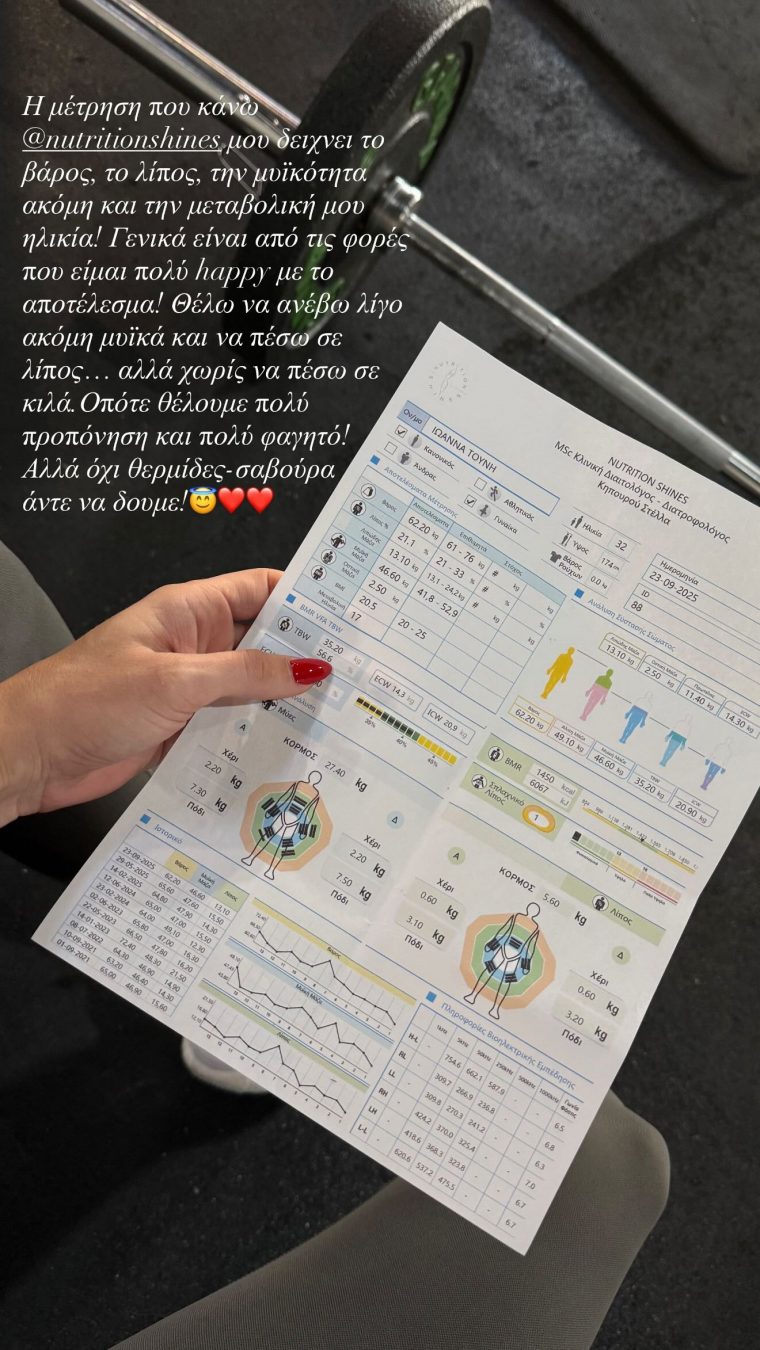 Η μέτρηση που κάνω
@nutritionshines μου δειχνει το
βάρος, το λίπος, την μυϊκότητα
ακόμη και την μεταβολική μου
ηλικία! Γενικά είναι από τις φορές
που είμαι πολύ happy με το
αποτέλεσμα! Θέλω να ανέβω λίγο
ακόμη μυϊκά και να πέσω σε
λίπος... αλλά χωρίς να πέσω σε
κιλά. Οπότε θέλουμε πολύ
προπόνηση και πολύ φαγητό!
Αλλά όχι θερμίδες-σαβούρα
άντε να δουμε!😇❤️❤️
NUTRITION SHINES
MSc Κλινική Διαιτολόγος - Διατροφολόγος
Κηπουρού Στέλλα
Ον/μο ΙΩΑΝΝΑ ΤΟΥΝΗ
Κανονικός
Αθλητικός
Άνδρας
Γυναίκα
Ηλικία 32
Ύψος 174 cm
Βάρος Ρούχων 0.0 kg
Ημερομηνία
23-09-2025
ID
88
Αποτελέσματα Μέτρησης
Αποτελέσματα Επιθυμητά Στόχος
Βάρος 62.20 kg 61 - 76 kg # kg
Λίπος % 21.1 % 21 - 33 % # %
Λιπώδης Μάζα 13.10 kg 13.1 - 24.2 kg # kg
Μυϊκή Μάζα 46.60 kg 41.8 - 52.9 kg
Οστική Μάζα 2.50 kg
BMI 20.5 20 - 25
Μεταβολική Ηλικία 17
Ανάλυση Σύστασης Σώματος
Λιπώδης Μάζα 13.10 kg
Οστική Μάζα 2.50 kg
Πρωτεΐνες 11.40 kg
ECW 14.30 kg
Βάρος 62.20 kg
Άλιπη Μάζα 49.10 kg
Μυϊκή Μάζα 46.60 kg
TBW 35.20 kg
ICW 20.90 kg
BMR ΥΓΙΑ TBW
TBW 35.20 kg
56.6 %
ECW 14,3 kg
ICW 20,9 kg
35% 40% 45%
BMR 1450 kcal
6067 kJ
Σπλαχνικό Λίπος 1
Μύες
Α
ΚΟΡΜΟΣ 27.40 kg
Χέρι
2.20 kg
7.30 kg
Πόδι
Δ
Χέρι
2.20 kg
7.50 kg
Πόδι
Λίπος
Α
ΚΟΡΜΟΣ 5.60 kg
Χέρι
0.60 kg
3.10 kg
Πόδι
Δ
Χέρι
0.60 kg
3.20 kg
Πόδι
Ιστορικό
Βάρος Μυϊκή Μάζα Λίπος
23-09-2025 62,20 46,60 13,10
29-05-2025 65,60 47,60 15,50
14-02-2025
12-06-2024
23-02-2024
02-06-2023
22-05-2023
14-01-2023
08-07-2022
10-09-2021
01-09-2021 65,00 46,90 15,60
Βάρος
Μυϊκή Μάζα
Λίπος
Πληροφορίες Βιοηλεκτρικής Εμπέδησης
1kHz 5kHz 50kHz 250kHz 500kHz 1000kHz Γωνία Φάσης
H-L - 754.6 662.1 587.9 - - 6.5
RL - 309.7 266.9 236.8 - - 6.8
LL - 309.8 270.3 241.2 - - 6.3
RH - 424.2 370.0 325.4 - - 7.0
LH - 418.6 368.3 323.8 - - 6.7
L-L - 620.6 537.2 475.5 - - 6.7